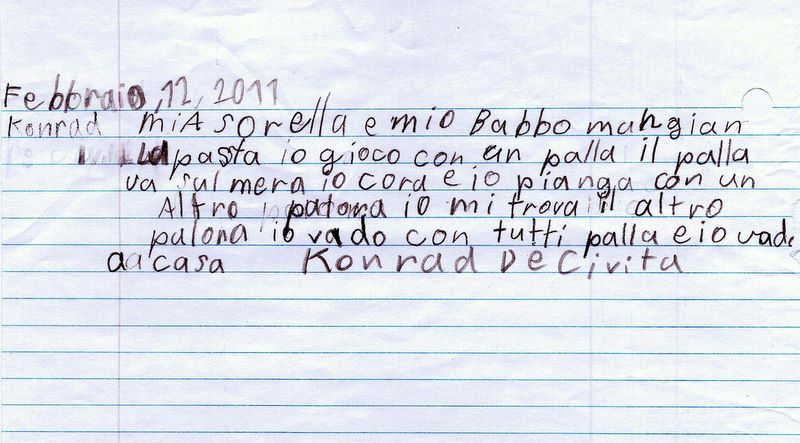 Febbraio, 12, 2011
Konrad miA sorella e mio Babbo mangian
la pasta io gioco con un palla il palla
va sul mera io cora e io pianga con un
Altro palona io mi trova il altro
palona io vado con tutti palla e io vado
a casa Konrad De Civita